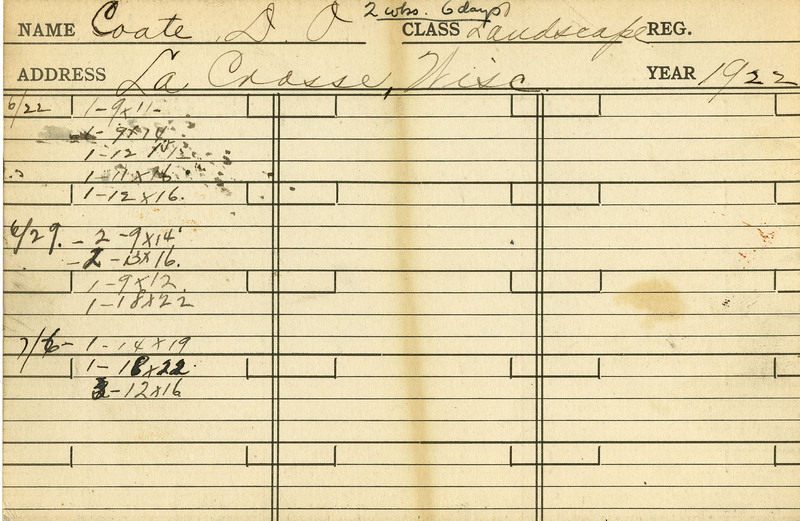 2 wks. 6 days
NAME Coate, D. O CLASS Landscape REG.
ADDRESS La Crosse, Wisc. YEAR 1922
6/22 1-9x11-
1-9x14
1-12
1-11x16
1-12x16.
6/29. - 2 -9x14
- 2 -13x16.
1-9x12.
1-18x22
7/6- 1-14x19
1-18x22
-12x16